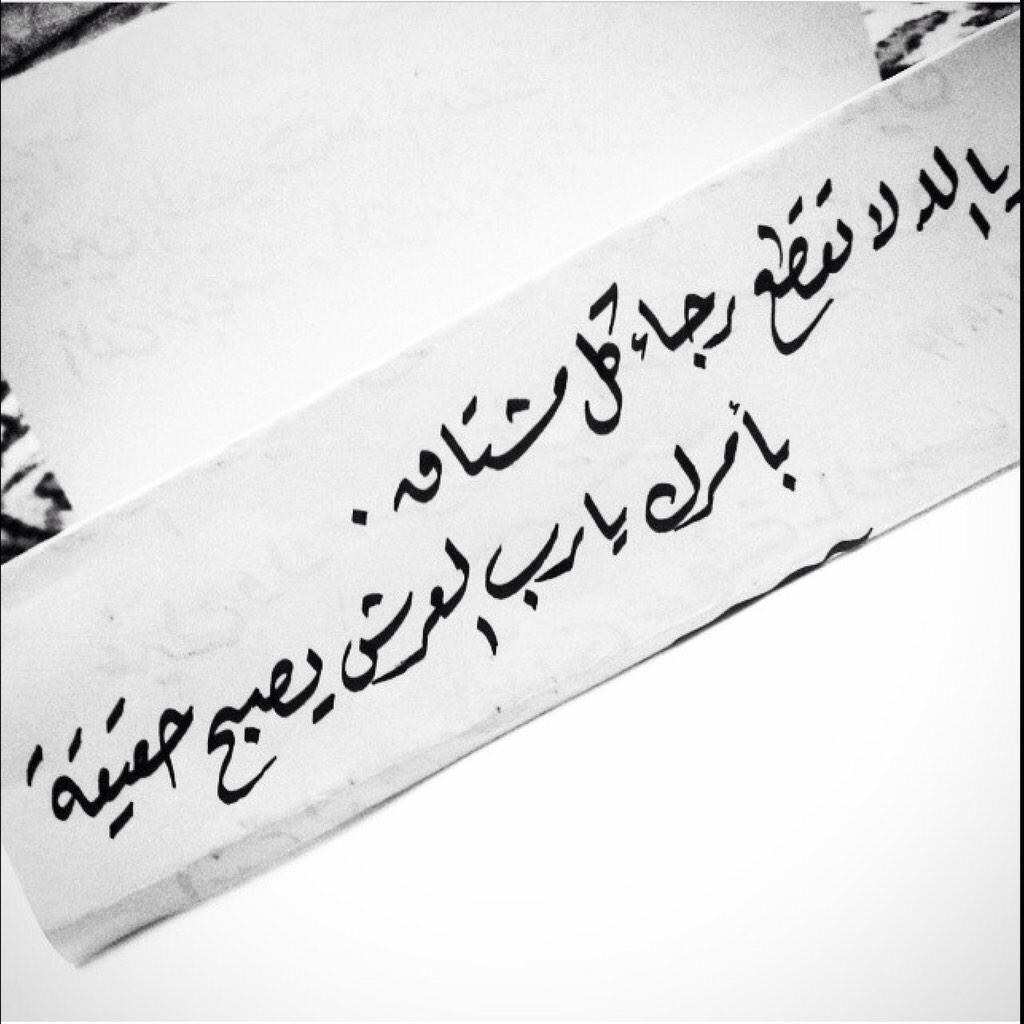 يا الله لا تقطع رجاء كل مشتاق .
بأمرك يا رب العرش يصبح حقيقة